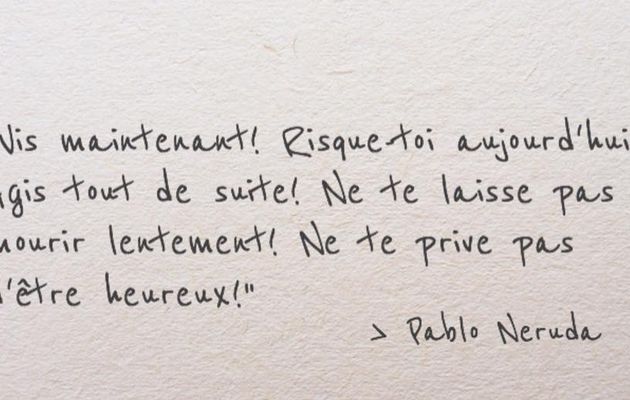 Vis maintenant! Risque-toi aujourd'hui
agis tout de suite! Ne te laisse pas
mourir lentement! Ne te prive pas
d'être heureux!"
> Pablo Neruda